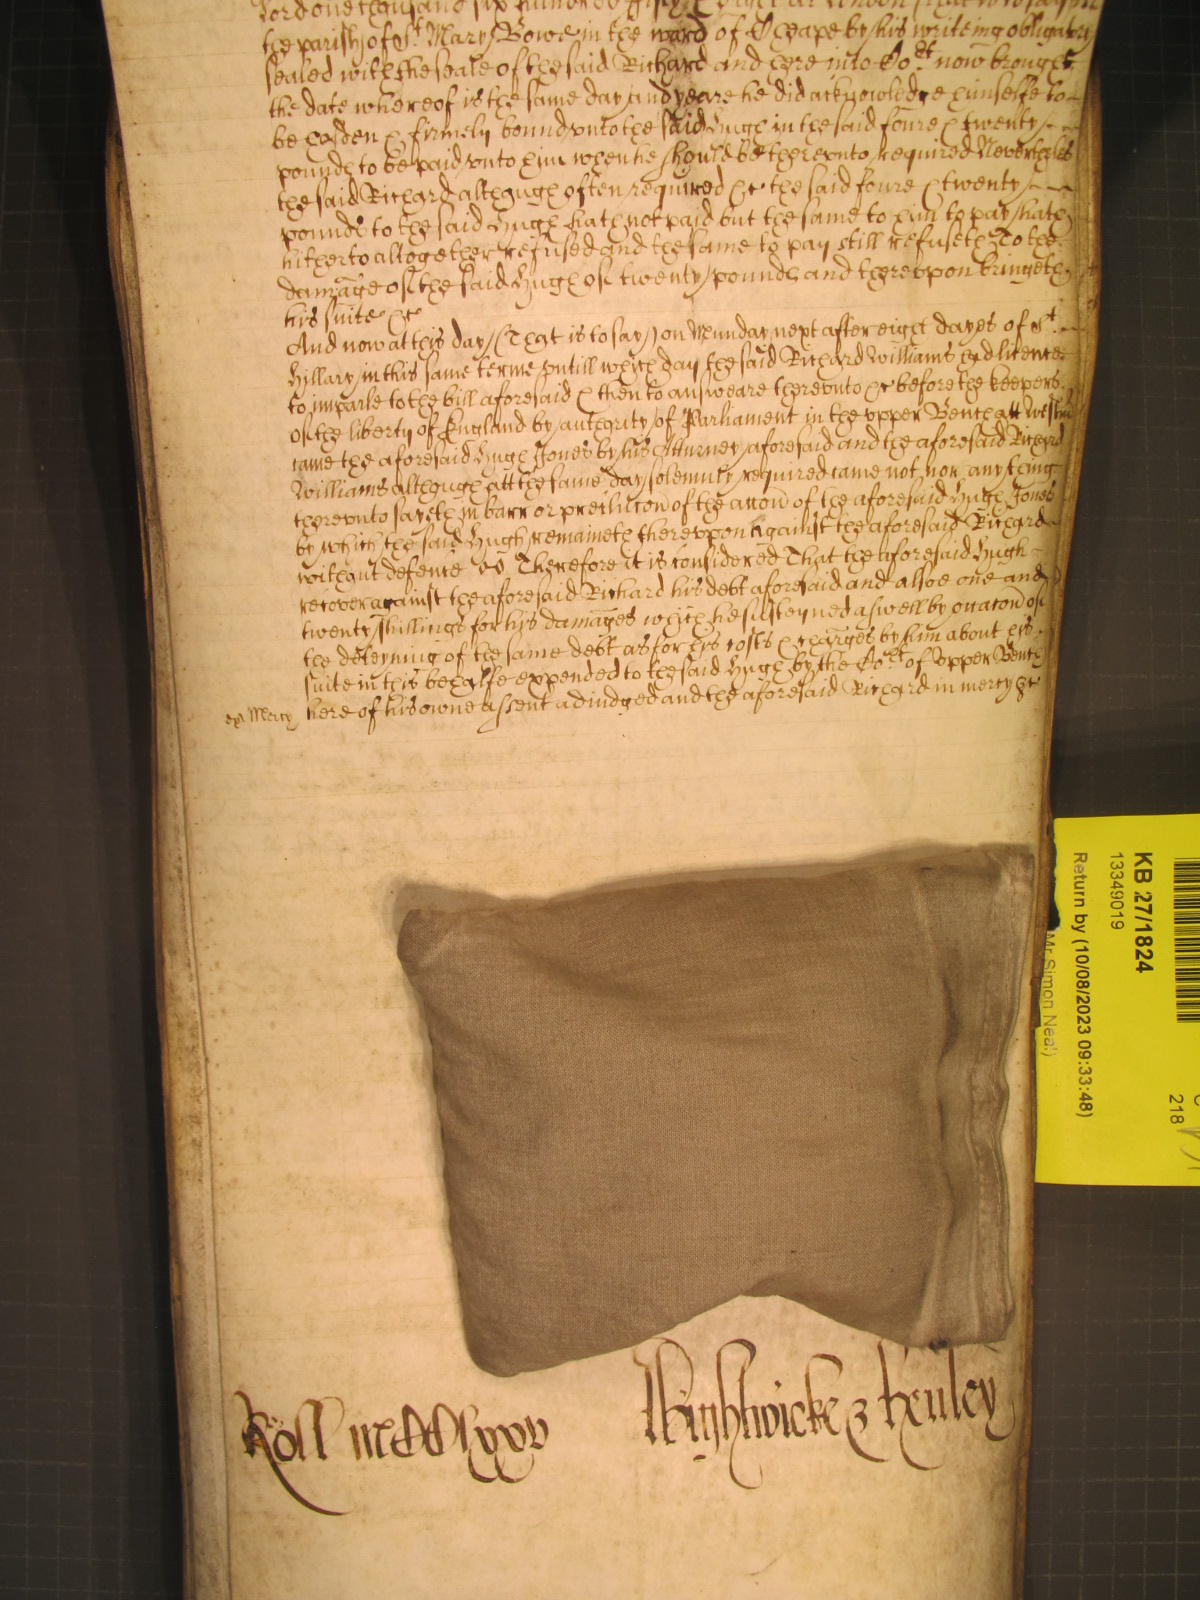 Lord one thousand six hundred fifty & eight at London that is to say in
the parish of St Mary Bowe in the ward of Cheape by his writeing obligatory
sealed with the seale of the said Richard and here into Cort now brought
the date whereof is the same day and yeare he did acknowledge himselfe to
be holden & firmely bound vnto the said Hugh in the said foure & twenty
pounds to be paid vnto him when he should be therevnto required Neverthelss
the said Richard although often required &c the said foure & twenty
pounds to the said Hugh hath not paid but the same to him to pay hath
hitherto altogether refused and the same to pay still refuseth To the
damage of the said Hugh of twenty pounds and therevpon bringeth
his suite &c
And now at this day (That is to say) on Munday next after eight dayes of St
Hillary in this same terme vntill which day the said Richard Williams had licence
to imparle to the bill aforesaid & then to answeare therevnto &c before the keepers
of the liberty of England by authority of Parliament in the vpper Bench att Westm
came the aforesaid Hugh Jones by his Atturney aforesaid and the aforesaid Richard
Williams although att the same day solemnly required came not nor any thing
therevnto sayeth in barr or preclucon of the accon of the aforesaid Hugh Jones
by which the said Hugh remaineth therevpon against the aforesaid Richard
without defence &c Therefore it is considered That the aforesaid Hugh
recover against the aforesaid Richard his debt aforesaid and alsoe one and
twenty shillings for his damages which he susteyned aswell by occacon of
the deteyning of the same debt as for his costs & charges by him about his
suite in this behalfe expended to the said Hugh by the Cort of Vpper Bench
here of his owne assent adiudged and the aforesaid Richard in mercy &c
Mercy
Roll mCClxxv
Highwicke & Henley
KB 27/1824
13349019
Return by (10/08/2023 09:33:48)
Mr Simon Neal)
218